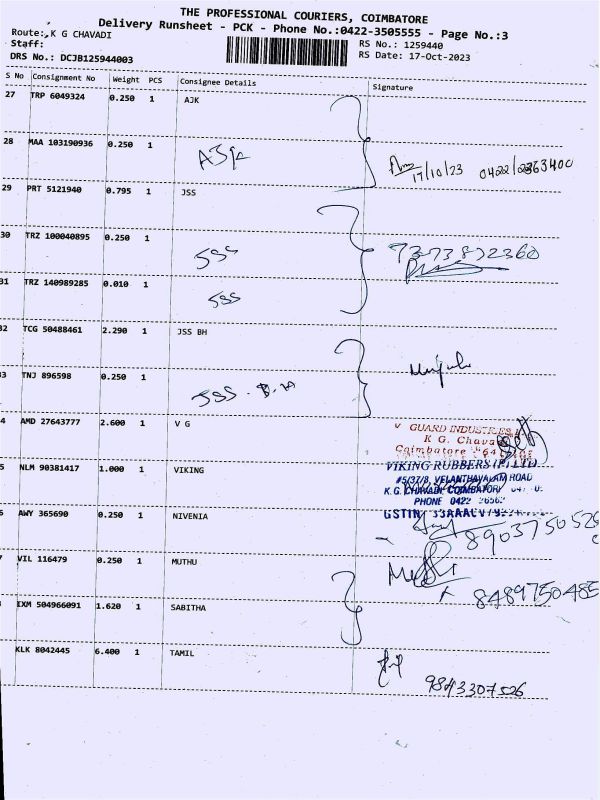 THE PROFESSIONAL COURIERS, COIMBATORE
Delivery Runsheet - PCK - Phone No.:0422-3505555 - Page No.:3
Route:,K G CHAVADI
RS No.: 1259440
Staff:
RS Date: 17-Oct-2023
DRS No.: DCJB125944003
S No Consignment No Weight PCS Consignee Details Signature
27 TRP 6049324 0.250 1 AJK
28 MAA 103190936 0.250 1
17/10/23
29 PRT 5121940 0.795 1 JSS
30 TRZ 100040895 0.250 1
JSS
7373872360
31 TRZ 140989285 0.010 1
JSS
32 TCG 50488461 2.290 1 JSS BH
33 TNJ 896598 0.250 1
JSS - B.H
4 AMD 27643777 2.600 1 V G
V GUARD INDUSTRIES
K G. Chava
Coimbatore
5 NLM 90381417 1.000 1 VIKING
VIKING RUBBERS (P) LTD
#5/37/8, VELANTHAVALAM ROAD
K.G. CHAVADI, COIMBATORE
PHONE 0422
GSTIN
6 AWY 365690 0.250 1 NIVENIA
7 VIL 116479 0.250 1 MUTHU
IXM 504966091 1.620 1 SABITHA
8489750485
KLK 8042445 6.400 1 TAMIL
9843307526